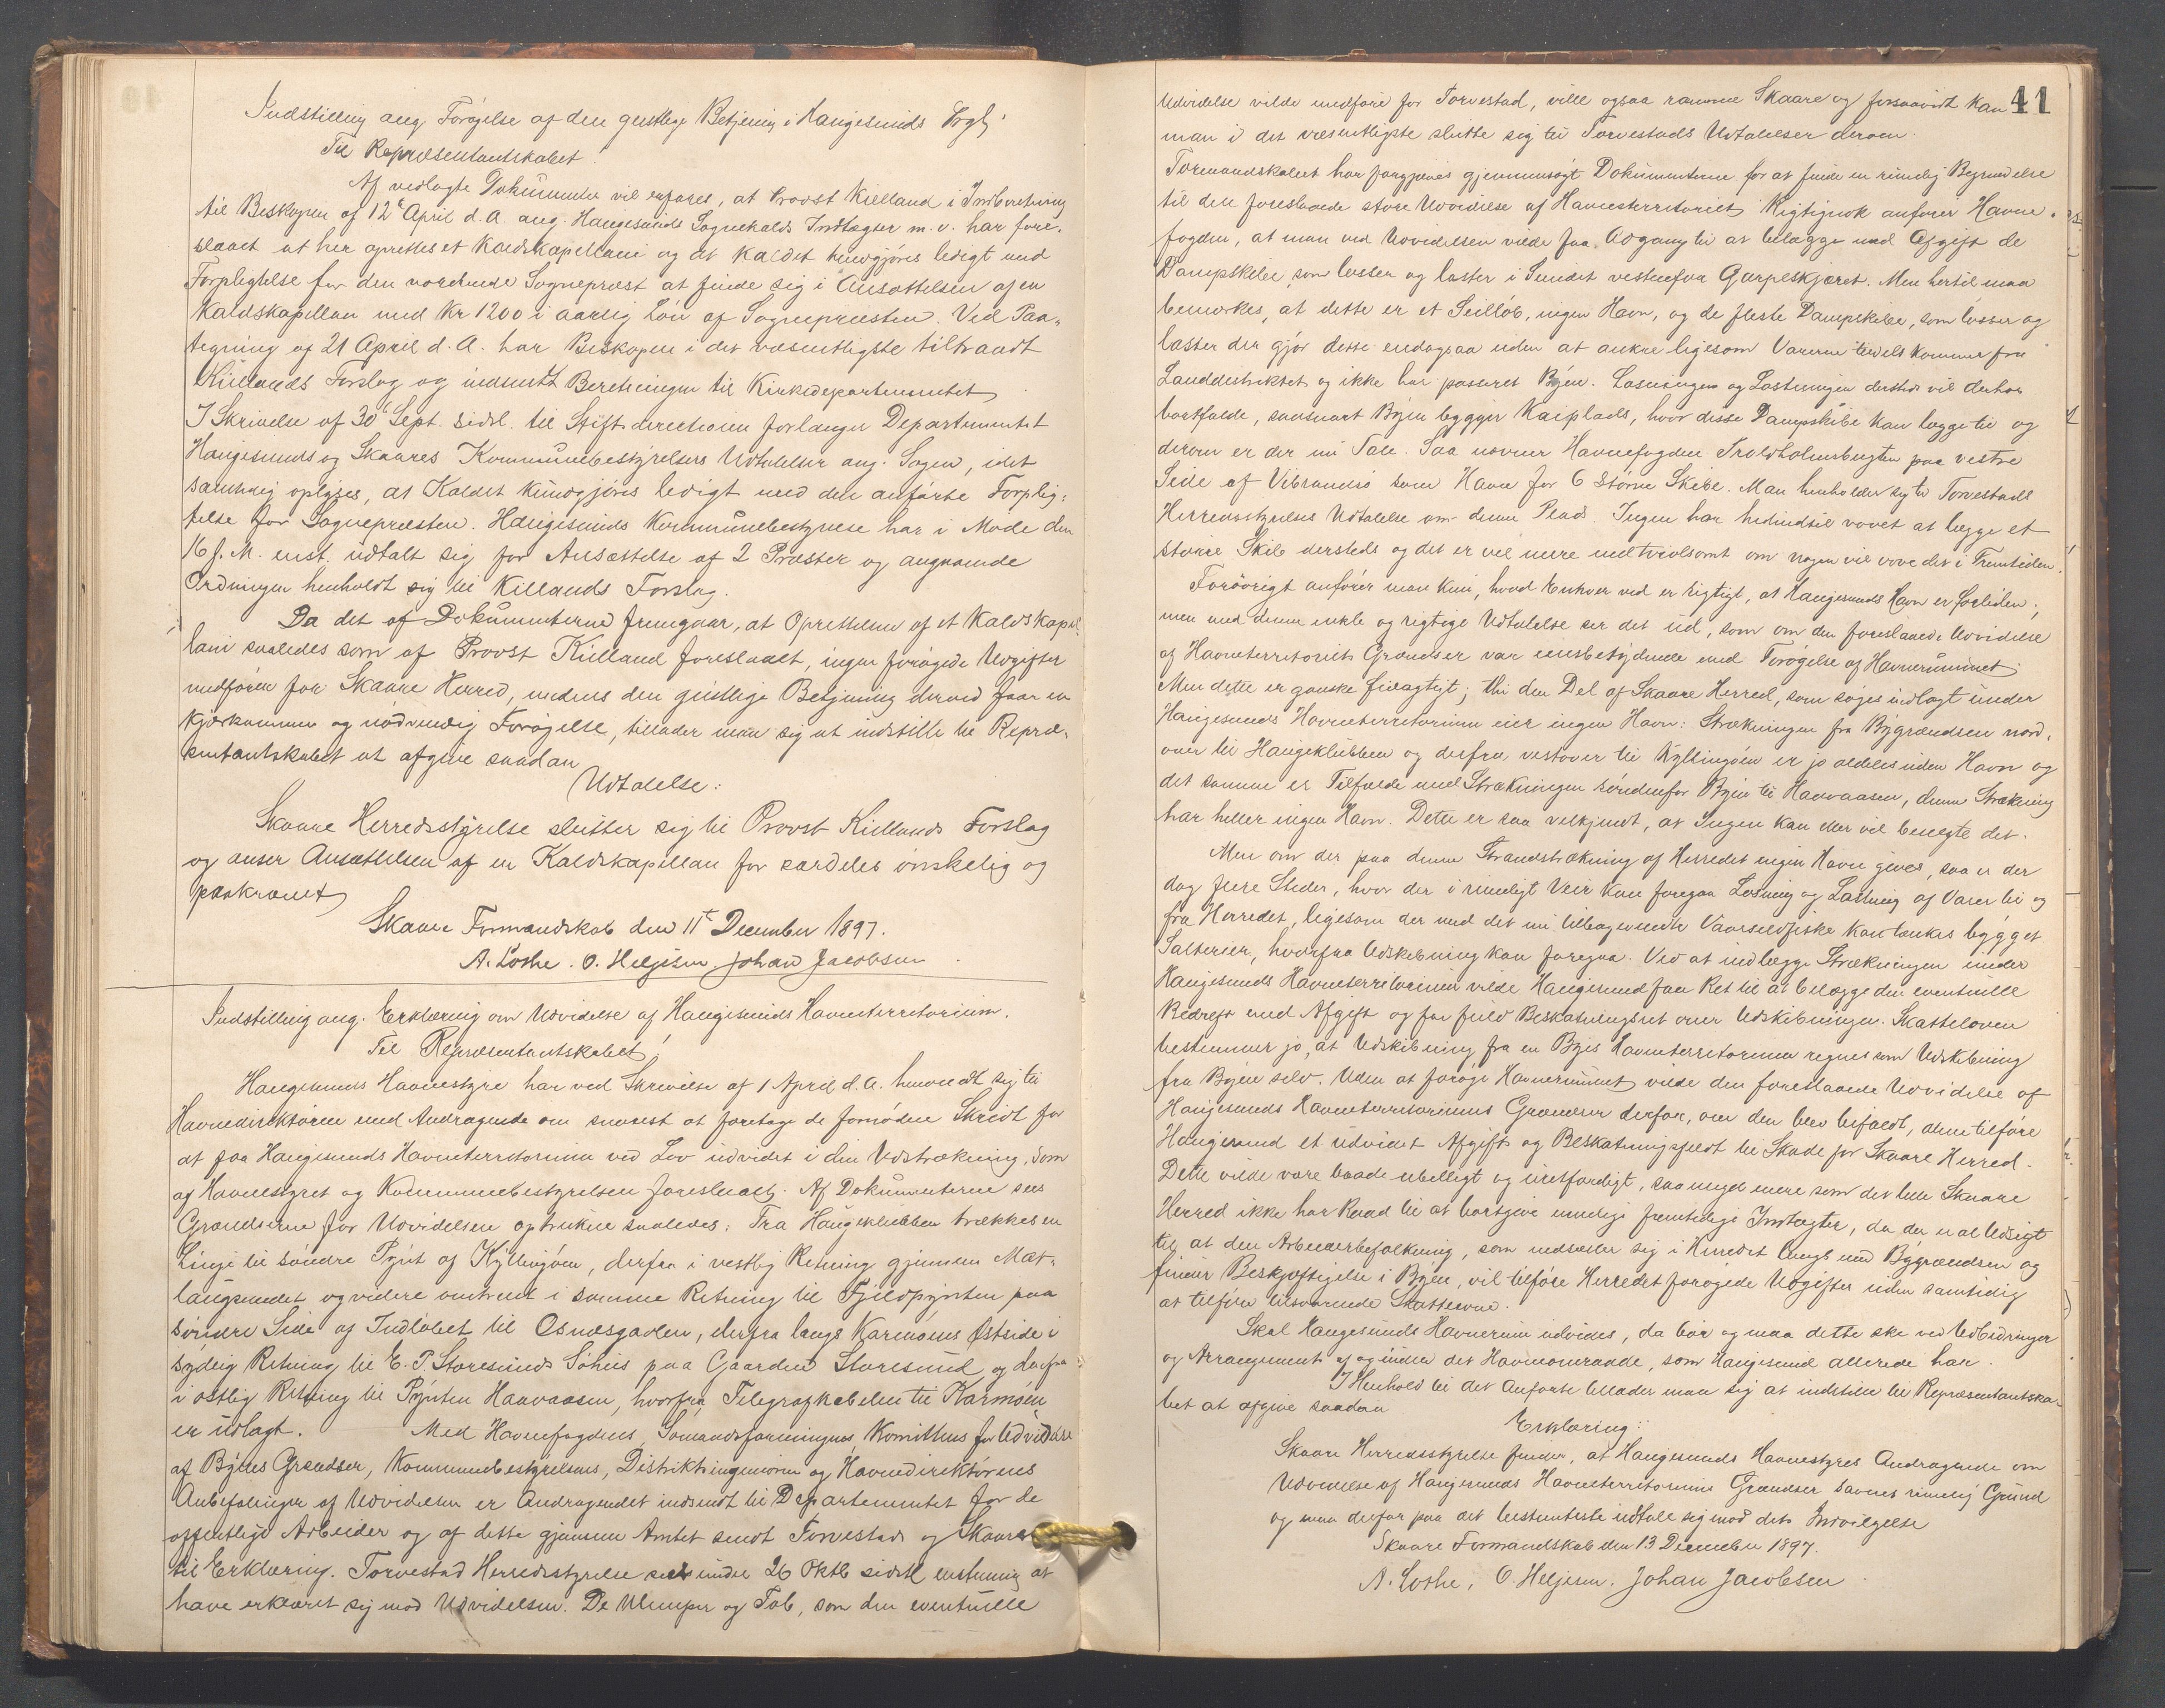 Indstilling ang. Forøgelse af den geistlige Betjening i Haugesunds Prgj.
Til Repræsentantskabet!
Af vedlagte Dokumenter vil erfares, at Provst Kielland i Indberetning
til Biskopen af 12te April d.A. ang. Haugesunds Sognekalds Indtægter m.v. har fore-
slaaet at her oprettes et Kaldskapellani og at Kaldet kundgjøres ledigt med
Forpligtelse for den vordende Sognepræst at finde sig i Ansættelsen af en
Kaldskapellan med Kr 1200 i aarlig Løn af Sognepræsten. Ved Paa-
tegning af 21 April d.A. har Biskopen i det væsentligste tiltraadt
Kiellands Forslag og indsendt Beretningen til Kirkedepartementet
I Skrivelse af 30te Sept. sidstl. til Stiftsdirectionen forlanger Departementet
Haugesunds og Skaares Kommunebestyrelsers Udtalelser ang. Sagen, idet
samtidig oplyses, at Kaldet kundgjøres ledigt med den anførte Forplig-
telse for Sognepræsten. Haugesunds Kommunebestyrelse har i Møde den
16 f.M. enst. udtalt sig for Ansættelse af 2 Præster og angaaende
Ordningen henholdt sig til Killands Forslag.
Da det af Dokumenterne fremgaar, at Oprettelsen af et Kaldskapel-
lani saaledes som af Provst Kielland foreslaaet, ingen forøgede Udgifter
medfører for Skaare Herred, medens den geistlige Betjening derved faar en
kjærkommen og nødvendig Forøgelse, tillader man sig at indstille til Repræ-
sentantskabet at afgive saadan
Udtalelse:
Skaare Herredsstyrelse slutter sig til Provst Kiellands Forslag
og anser Ansættelsen af en Kaldskapellan for særdeles ønskelig og
paakrævet
Skaare Formandskab den 11te December 1897.
A. Lothe. O. Heljesen Johan Jacobsen
Indstilling ang. Erklæring om Udvidelse af Haugesunds Havneterritorium.
Til Repræsentantskabet!
Haugesunds Havnestyre har ved Skrivelse af 1 April d.A. henvendt sig til
Havnedirektøren med Andragende om snarest at foretage de fornødne Skridt for
at faa Haugesunds Havneterritorium ved Lov udvidet i den Udstrækning, som
af Havnestyret og Kommunebestyrelsen foreslaaet. Af Dokumenterne sees
Grændserne for Udvidelsen optrukne saaledes: Fra Haugeklubben trækkes en
Linje til søndre Pynt af Kyllingøen, derfra i vestlig Retning gjennem Mæt-
laugsundet og videre omtrent i samme Retning til Fjeldpynten paa
søndre Side af Indløbet til Osnæsgavlen, derfra langs Karmøens Østside i
sydlig Retning til E. T. Storesunds Søhus paa Gaarden Storesund og derfra
i østlig Retning til Pynten Haavaasen, hvorfra Telegrafkabelen til Karmøen
er udlagt. Med Havnefogdens, Sømandsforeningens, Komitteens for Udvidelse
af Byens Grændser, Kommunebestyrelsens, Distriktsingeniøren og Havnedirektørens
Anbefalinger af Udvidelsen er Andragendet indsendt til Departementet for de
offentlige Arbeider og af dette gjennem Amtet sendt Torvestad og Skaare
til Erklæring. Torvestad Herredsstyrelse sees under 26 Oktb sidstl enstemmig at
have erklæret sig mod Udvidelsen. De Ulemper og Tab, som den eventuelle
41
Udvidelse vilde medføre for Torvestad, ville ogsaa ramme Skaare og forsaavidt kan
man i det væsentligste slutte sig til Torvestads Udtalelser derom.
Formandskabet har forgjæves gjennemsøgt Dokumenterne for at finde en rimelig Begrundelse
til den foreslaaede store Udvidelse af Havneterritoriet. Rigtignok anfører Havne-
fogden, at man ved Udvidelsen vilde faa Adgang til at belægge med Afgift de
Dampskibe, som losser og laster i Sundet vestenfra Garpeskjæret. Men hertil maa
bemærkes, at dette er et Seilløb, ingen Havn, og de fleste Dampskibe, som losser og
laster der gjør dette endogsaa uden at ankre ligesom Varerne tildels kommer fra
Landdistriktet og ikke har passeret Byen. Losningen og Lastningen dersteds vil derhos
bortfalde, saasnart Byen bygger Kaiplads, hvor disse Dampskibe kan lægge til og
derom er der nu Tale. Saa nævner Havnefogden Troldholmbugten paa vestre
Side af Vibrandsø som Havn for 6 større Skibe. Man henholder sig til Torvestads
Herredsstyrelses Udtalelse om denne Plads. Ingen har hedindtil vovet at lægge et
større Skib dersteds og det er vel mere end tvivlsomt om nogen vil vove det i Fremtiden.
Forøvrigt anfører man kun, hvad Enhver ved er rigtigt, at Haugesunds Havn er for liden;
men med denne enkle og rigtige Udtalelse ser det ud, som om den foreslaaede Udvidelse
af Havneterritoriets Grændser var eensbetydende med Forøgelse af Havnerummet.
Men dette er ganske feilagtigt; thi den Del af Skaare Herred, som søges indlagt under
Haugesunds Havneterritorium eier ingen Havn: Strækningen fra Bygrændsen nord-
over til Haugeklubben og derfra vestover til Kyllingøen er jo aldeles uden Havn og
det samme er Tilfælde med Strækningen søndenfor Byen til Haavaasen, denne Strækning
har heller ingen Havn. Dette er saa velkjendt, at Ingen kan eller vil benegte det.
Men om der paa denne Strandstrækning af Herredet ingen Havn gives, saa er der
dog flere Steder, hvor der i rimeligt Veir kan foregaa Losning og Lastning af Varer til og
fra Herredet, ligesom der med det nu tilbagevendte Vaarsildfiske kan tænkes bygget
Salterier, hvorfra Udskibning kan foregaa. Ved at indlægge Strækningen under
Haugesunds Havneterritorium vilde Haugesund faa Ret til at belægge den eventuelle
Bedrift med Afgift og faa fuld Beskatningsret over Udskibningen. Skatteloven
bestemmer jo, at Udskibning fra en Byes Havneterritorium regnes som Udskibning
fra Byen selv. Uden at forøge Havnerummet vilde den foreslaaede Udvidelse af
Haugesunds Havneterritoriums Grændser derfor, om den blev bifaldt, alene tilføre
Haugesund et udvidet Afgifts og Beskatningsfeldt til Skade for Skaare Herred.
Dette vilde være baade ubilligt og uretfærdigt, saameget mere som det lille Skaare
Herred ikke har Raad til at bortgive mulige fremtidige Indtægter, da der er al Udsigt
til at den Arbeiderbefolkning, som nedsætter sig i Herredet langs med Bygrændsen og
finder Beskjæftigelse i Byen, vil tilføre Herredet forøgede Udgifter uden samtidig
at tilføre tilsvarende Skatteevne.
Skal Haugesunds Havnerum udvides, da bør og maa dette ske ved Udbedringer
og Arrangement af og under det Havneomraade, som Haugesund allerede har.
I Henhold til det Anførte tillader man sig at indstille til Repræsentantska-
bet at afgive saadan
Erklæring:
Skaare Herredsstyrelse finder, at Haugesunds Havnestyres Andragende om
Udvidelse af Haugesunds Havneterritoriums Grændser savner rimelig Grund
og maa derfor paa det bestemteste udtale sig mod dets Indvilgelse
Skaare Formandskab den 13 December 1897.
A. Lothe, O. Heljesen. Johan Jacobsen